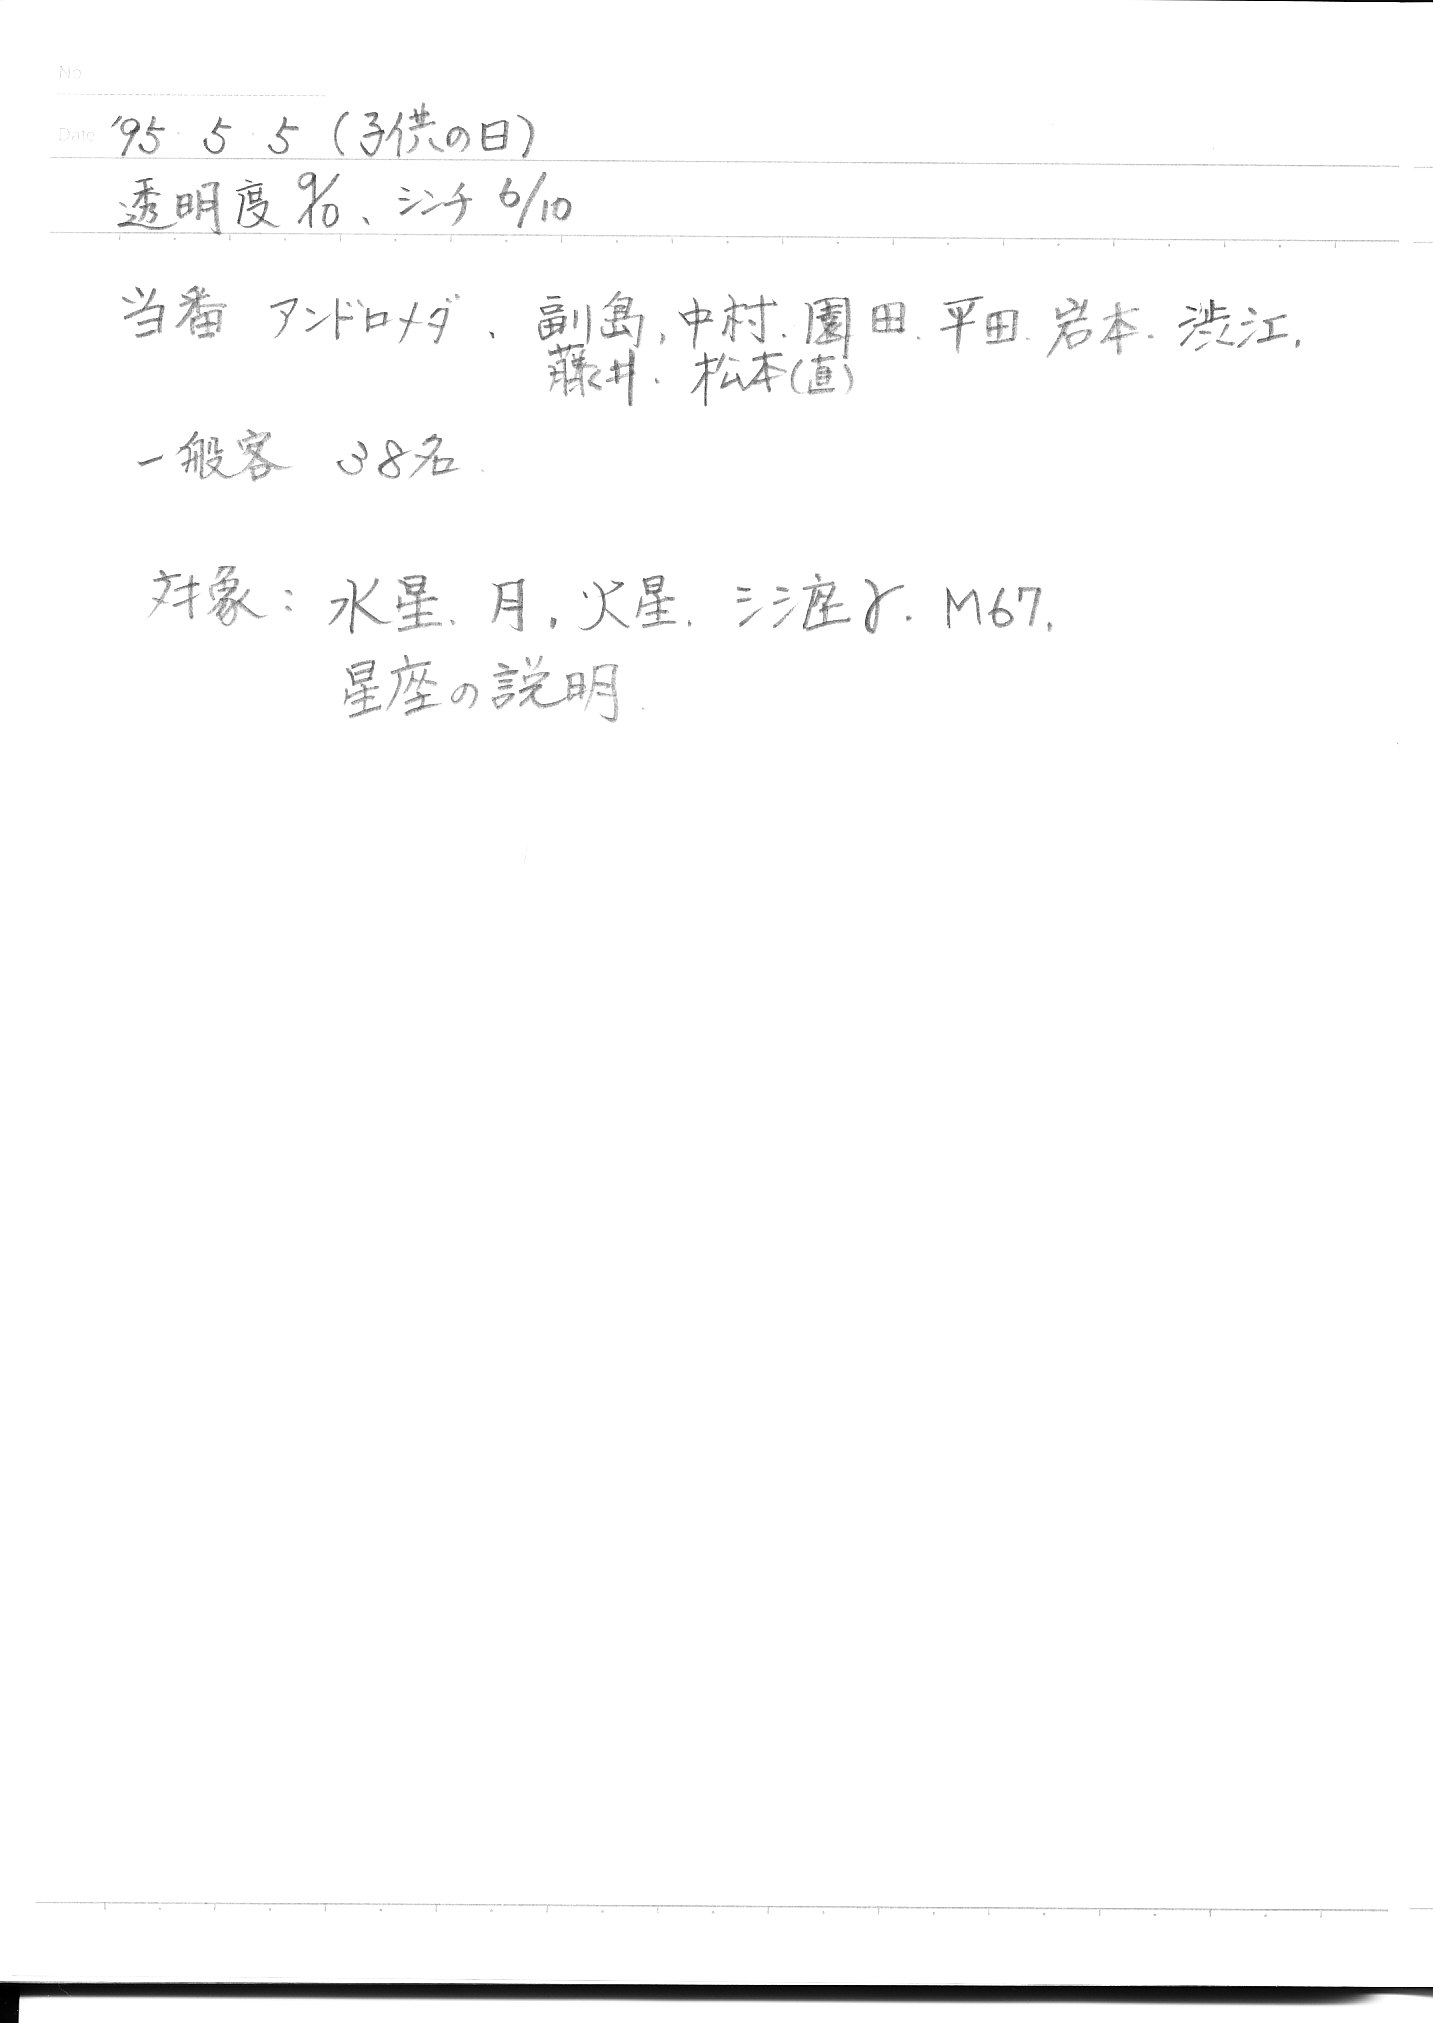 No.
Date '95 5 5 (子供の日)
透明度 9/10、シンチ 6/10
当番 アンドロメダ、副島, 中村. 園田. 平田. 岩本. 渋江,
藤井. 松本(直)
一般客 38名.
対象: 水星. 月, 火星. シシ座γ. M67,
星座の説明.